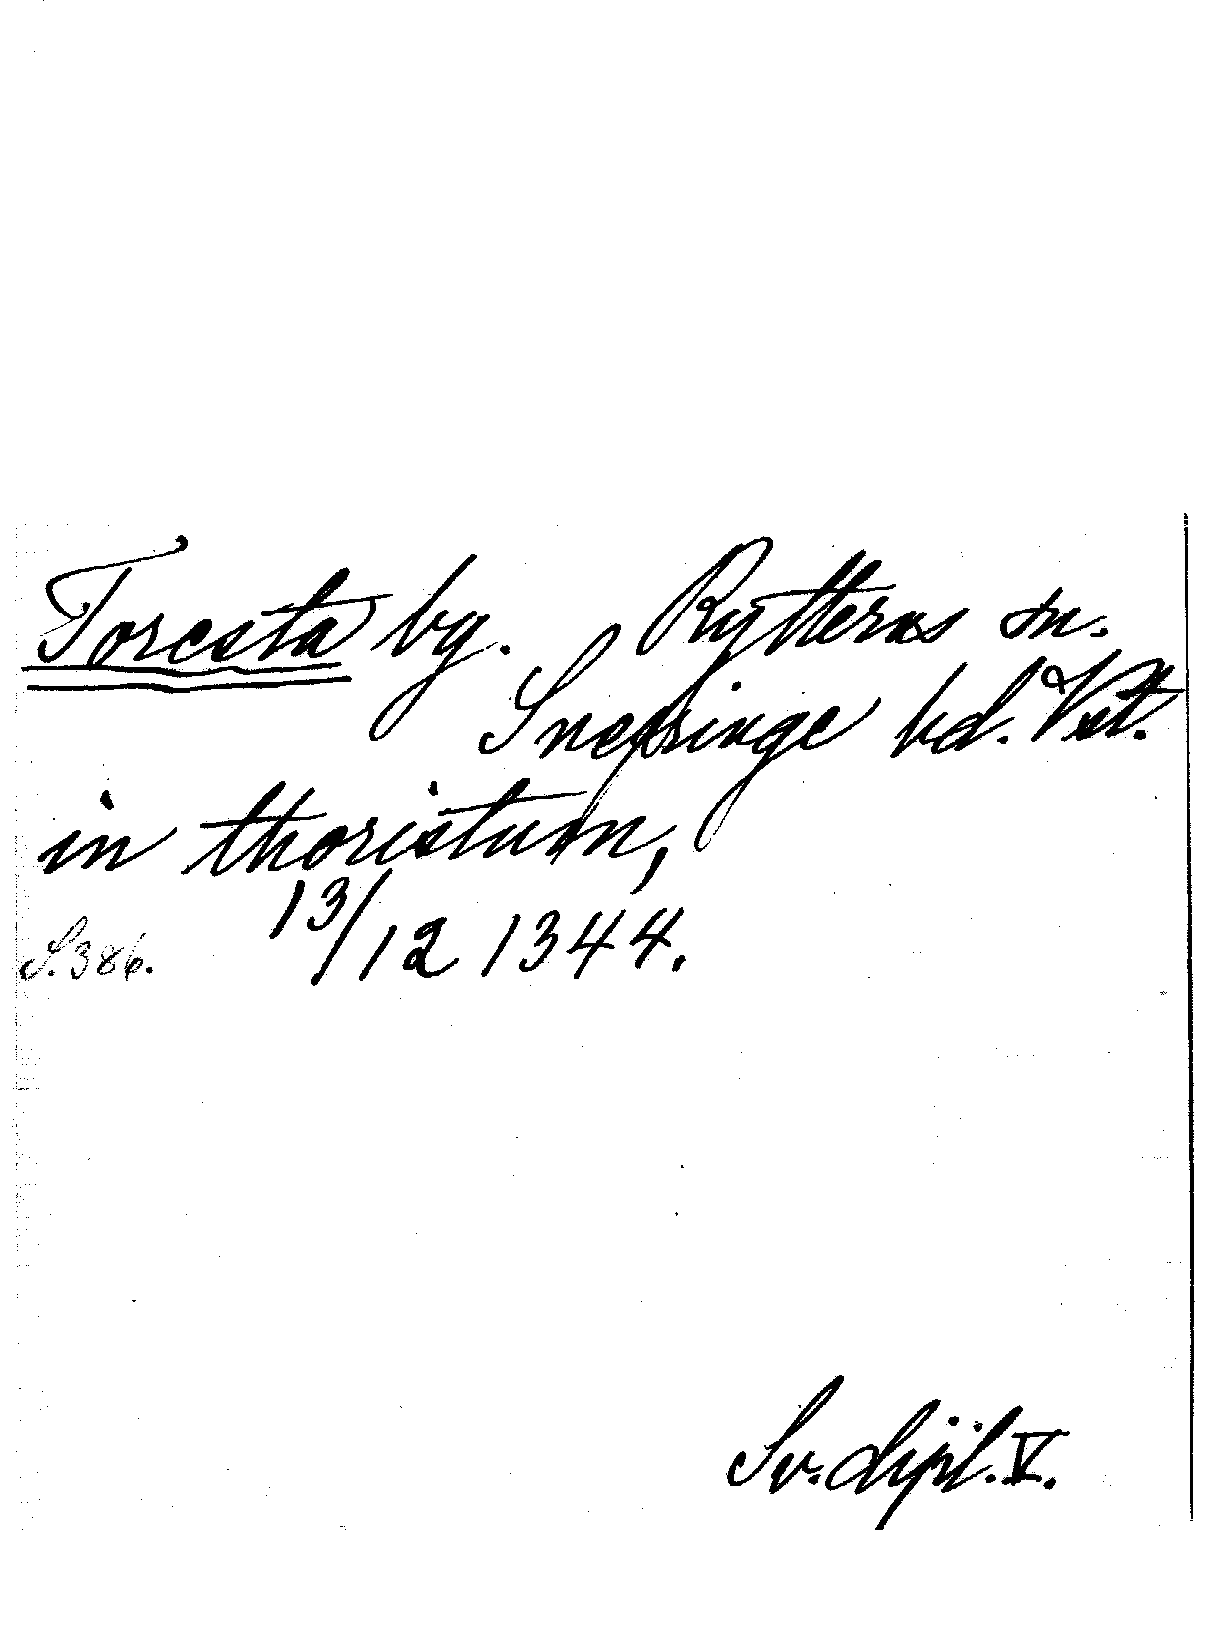 Toresta by. Rytterns sn.
Snefringe hd. Vstl.
in thoristum,
13/12 1344.
S. 386.
Sv. dipl. V.